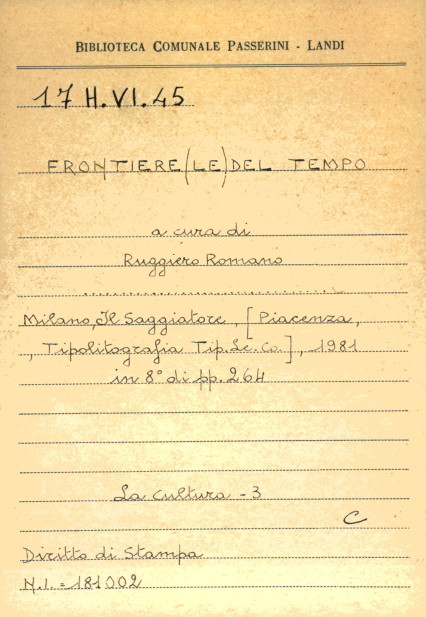 BIBLIOTECA COMUNALE PASSERINI - LANDI
17 H.VI.45
FRONTIERE (LE) DEL TEMPO
a cura di
Ruggiero Romano
Milano, Il Saggiatore, [Piacenza,
, Tipolitografia Tip.Le.Co.], 1981
in 8° di pp. 264
La cultura - 3
C
Diritto di Stampa
N.I. = 181002